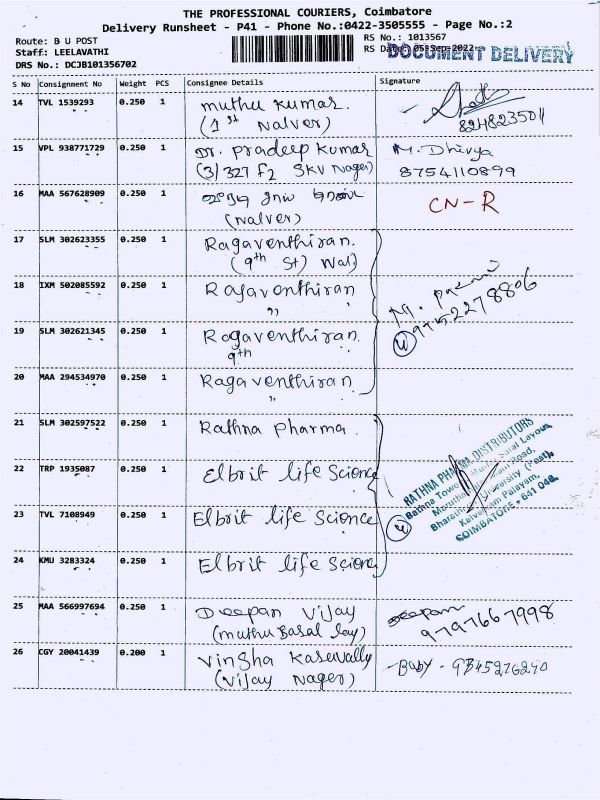 THE PROFESSIONAL COURIERS, Coimbatore
Delivery Runsheet - P41 - Phone No.:0422-3505555 - Page No.:2
Route: B U POST
Staff: LEELAVATHI
DRS No.: DCJB101356702
RS No.: 1013567
RS Date: 05-Sep-2022
DOCUMENT DELIVERY
S No Consignment No Weight PCS Consignee Details Signature
14 TVL 1539293 0.250 1 Muthu Kumar.
(1st Nalver)
15 VPL 938771729 0.250 1 Dr. Pradeep Kumar M. Dhivya
(3/327 F2 SKV Nager) 8754110899
16 MAA 567628909 0.250 1 CN-R
(Nalver)
17 SLM 302623355 0.250 1 Ragaventhiran.
(9th St) Nal)
18 IXM 502085592 0.250 1 Ragaventhiran
"
19 SLM 302621345 0.250 1 Ragaventhiran.
9th
20 MAA 294534970 0.250 1 Ragaventhiran
"
21 SLM 302597522 0.250 1 Rathna Pharma.
RATHNA PHARMA DISTRIBUTORS
Kalveeram Palayam,
COIMBATORE - 641 046.
22 TRP 1935087 0.250 1 Elbrit life Science
23 TVL 7108949 0.250 1 Elbrit life Science
24 KMU 3283324 0.250 1 Elbrit life Science
25 MAA 566997694 0.250 1 Deepan Vijay Deepan
(Muthu Basal lay) 9797667998
26 CGY 20041439 0.200 1 Vingha Kasevally - Baby - 9345276290
(Vijay Nager)